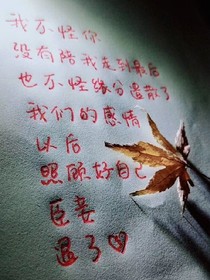 我不怪你
没有陪我走到最后
也不怪缘分遣散了
我们的感情
以后
照顾好自己
臣妾
退了♡